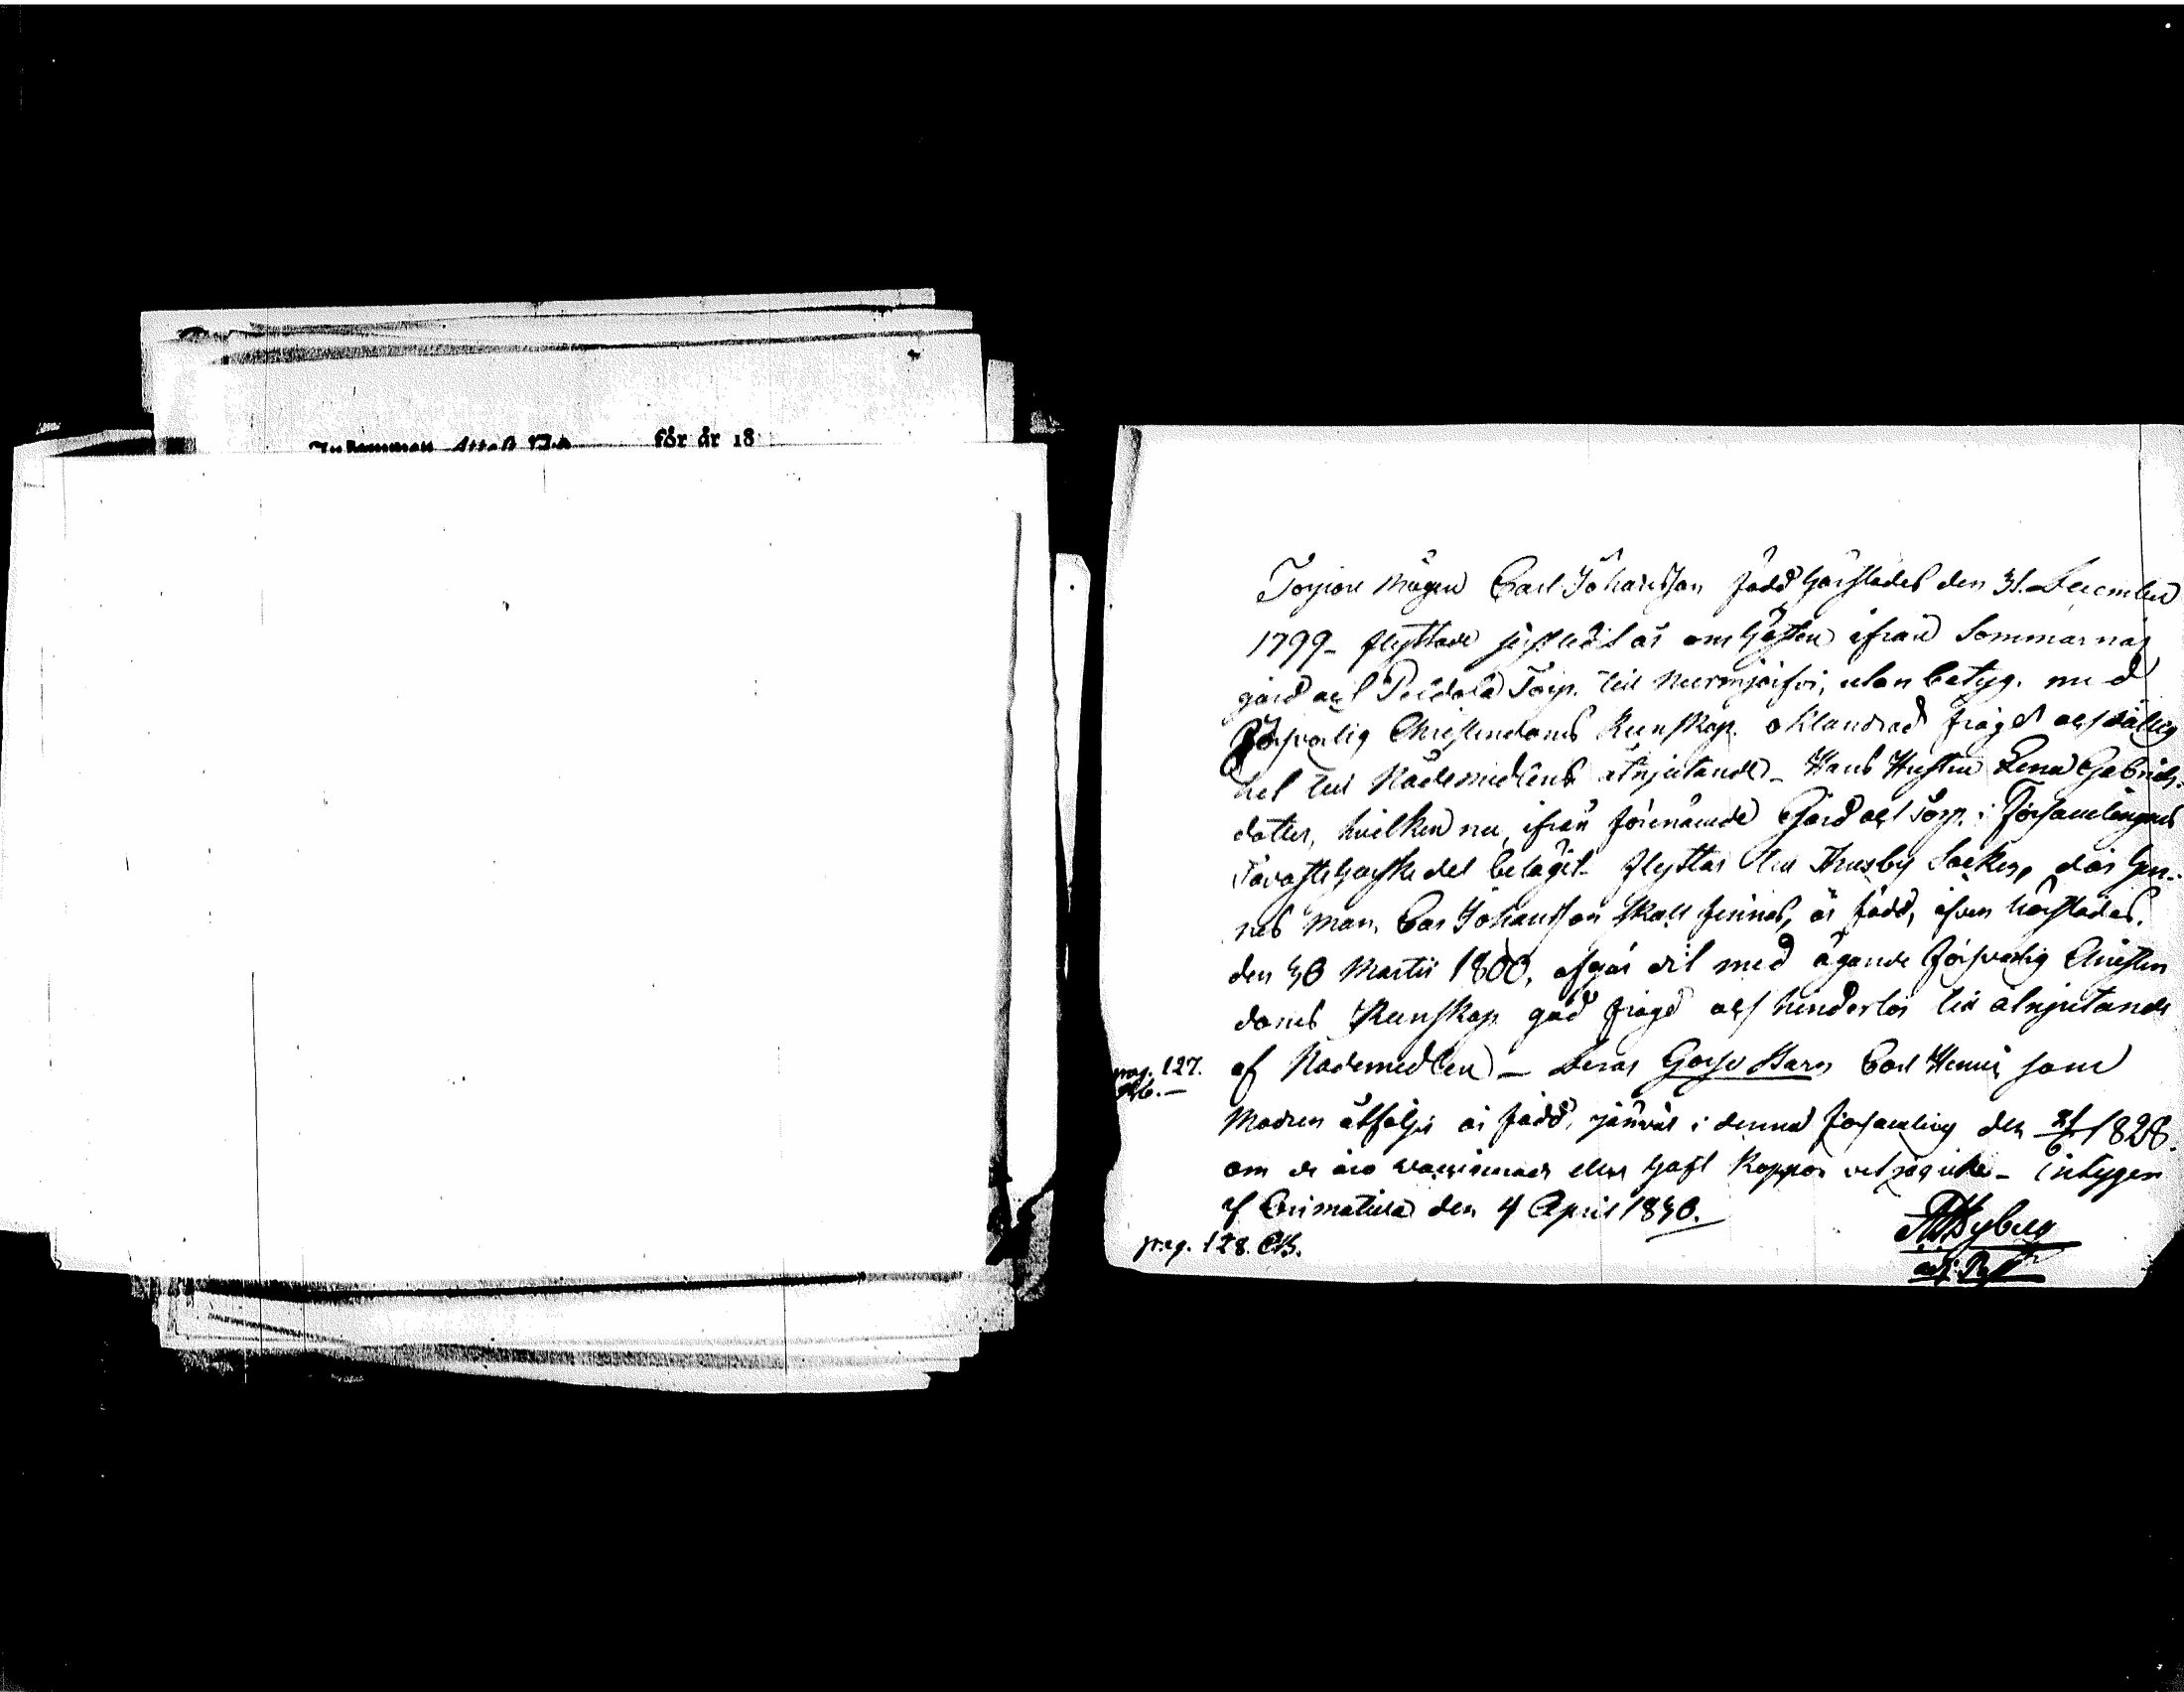 Inkommen Attest N:o för år 18
Torpare Mågen Carl Johansson född härstädes den 31. December
1799 – flyttade sistledit år om hösten ifrån Sommarnäs
gård och Torp. till Nurmijärfvi, utan betyg. med
försvarlig Christendoms Kunskap. oklandrad frägd och
het till Nådemedlens åtnjutande – Hans Hustru Lena Gabriels-
dotter, hvilken nu ifrån förenämde Gård och Torp. i Församlingens
Tavastehuske del belägit – flyttar till Thusby Socken, där hen-
nes Man Carl Johansson skall finnas, är född, äfven härstädes.
den 30 Martii 1800, afgår dit med ägande försvarlig Christen
doms Kunskap god frägd och hinderlös till åtnjutande
pag. 127. af Nådemedlen – Deras Gosse Barn Carl Henric som
Modren åtföljer är född, i denna församling den 1828.
om de äro vaccinerade eller haft Koppor vet jag icke – intygar
af Orimattila den 4 April 1830.
pag. 128.
adj. Past